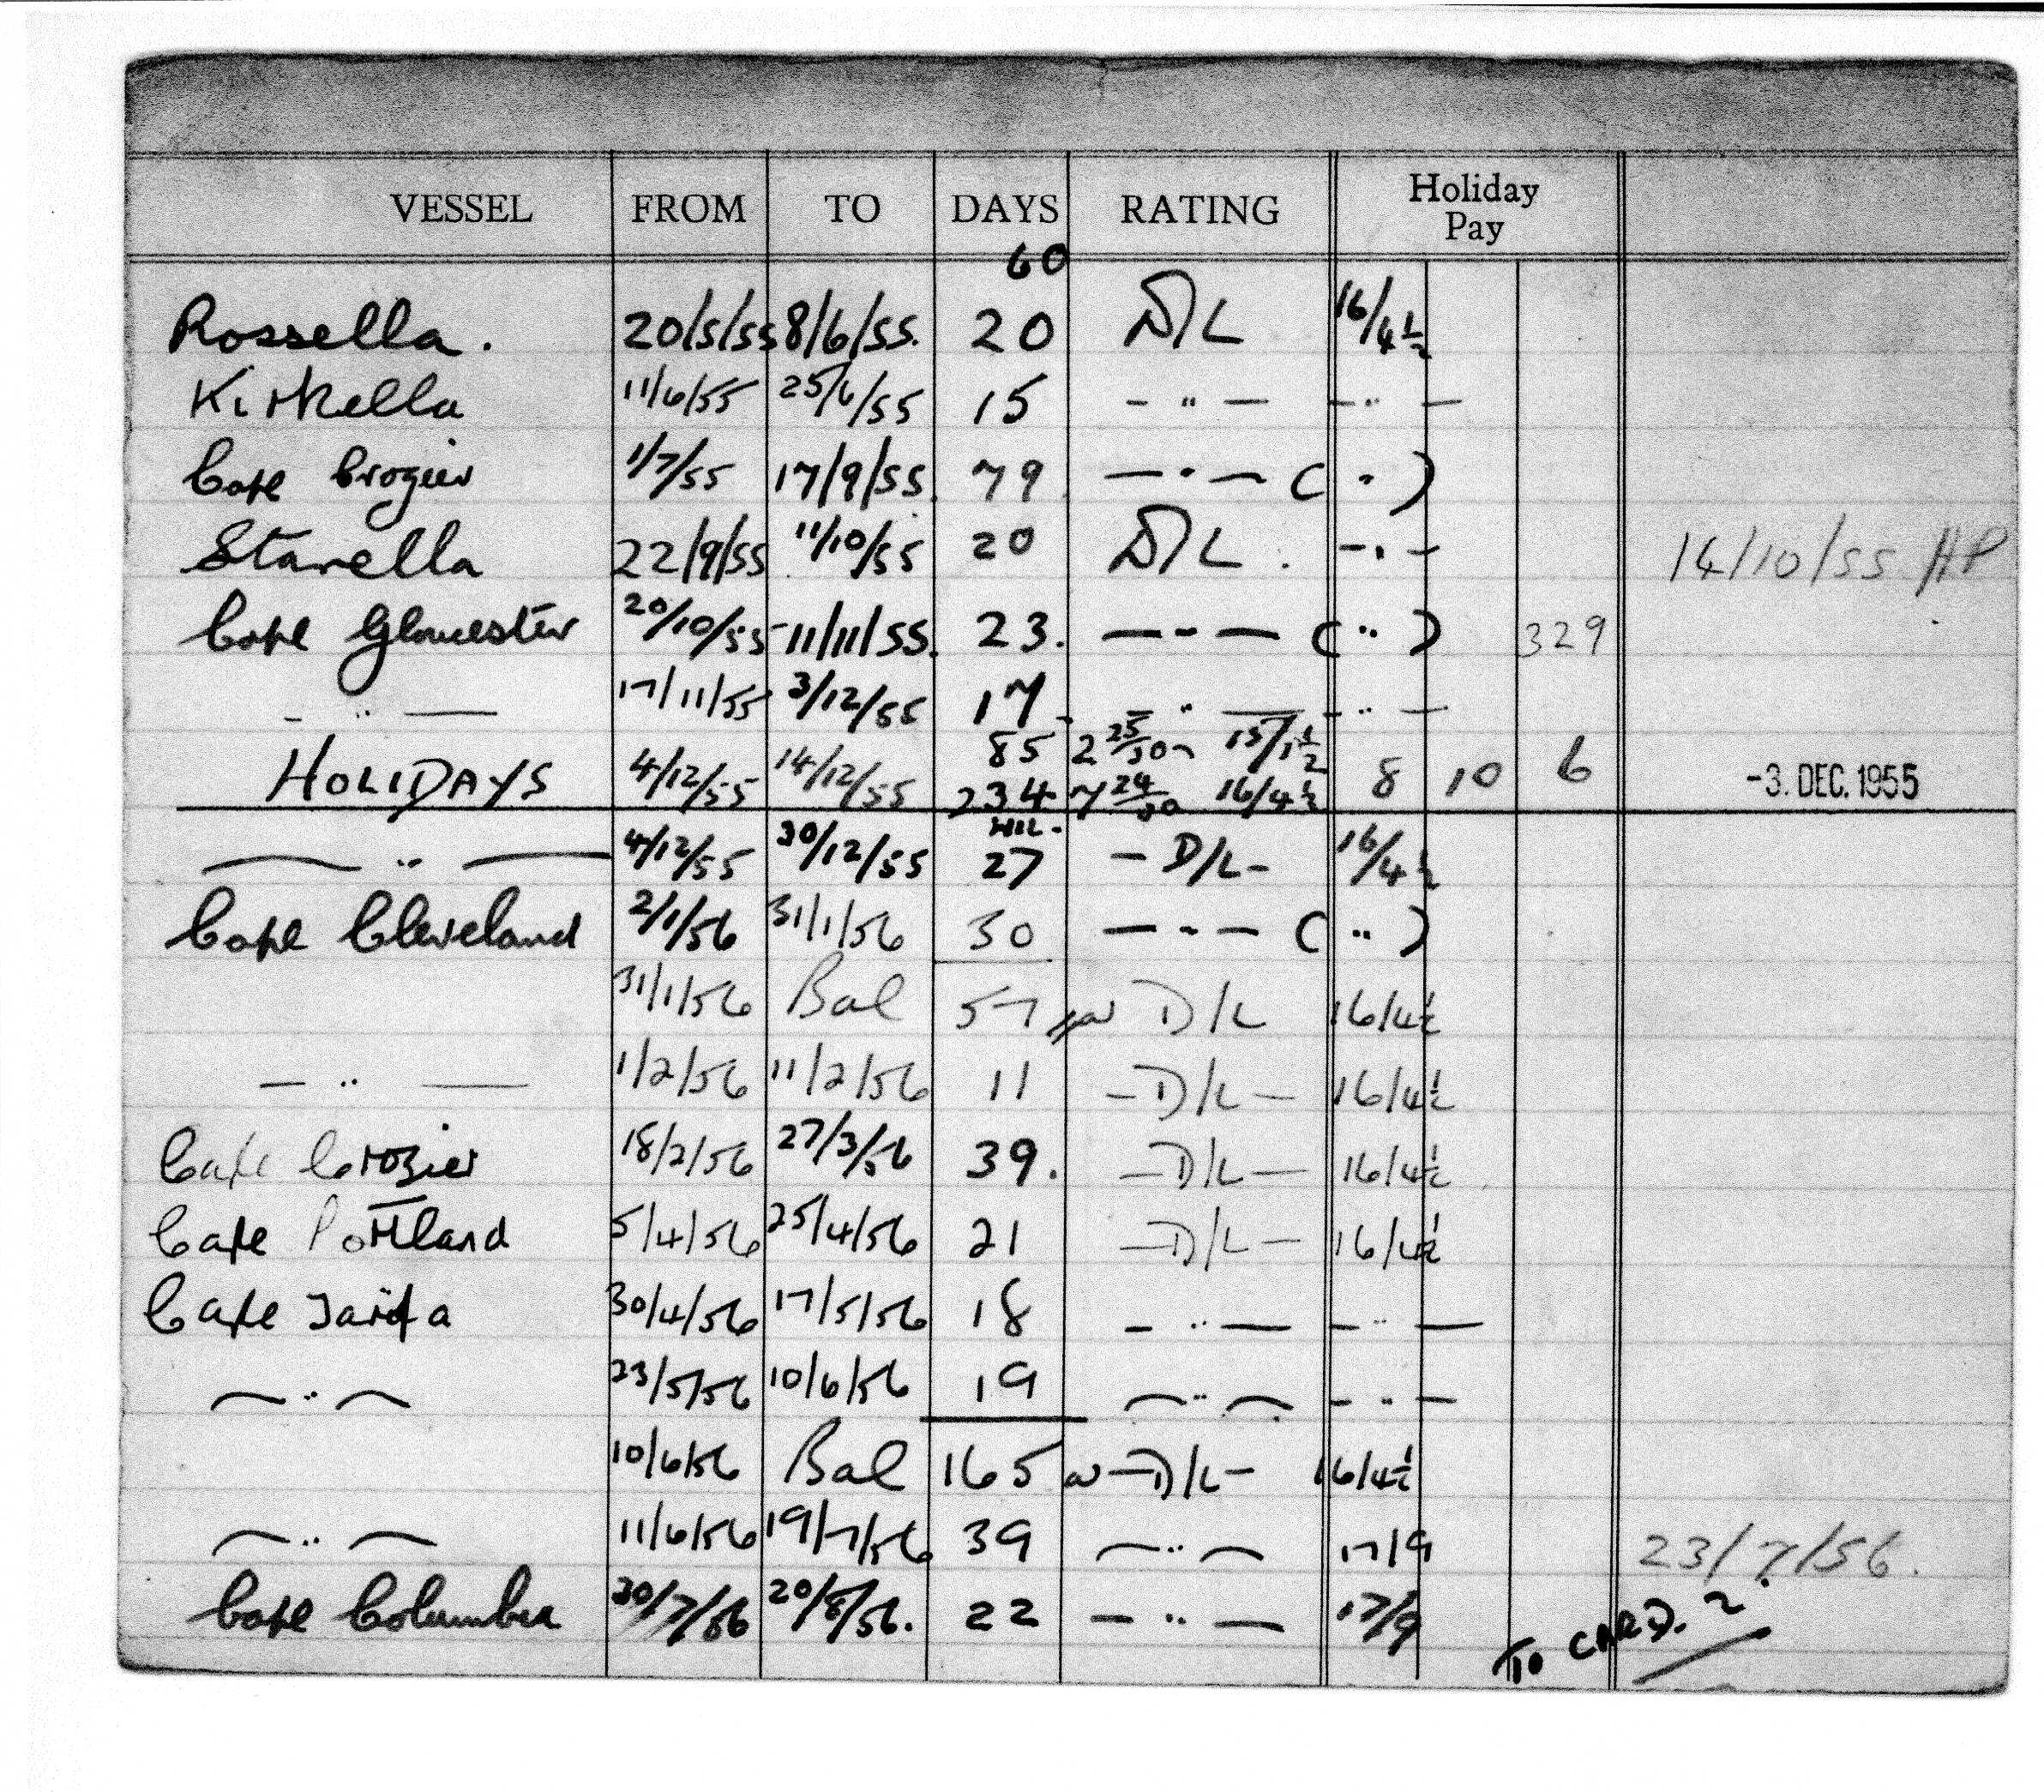 VESSEL FROM TO DAYS RATING Holiday Pay
60
Rossella. 20/5/55 8/6/55. 20 D/L 16/4½
Kirkella 11/6/55 25/6/55 15 - " - - " -
Cape Crozier 1/7/55 17/9/55. 79 - " - ( " )
Starella 22/9/55 11/10/55 20 D/L. - " - 14/10/55 HP
Cape Gloucester 20/10/55 11/11/55. 23. - " - ( " ) 329
- " - 17/11/55 3/12/55 17 - " - - " -
85 2 25/30 15/1½
HOLIDAYS 4/12/55 14/12/55 234 7 24/30 16/4½ 8 10 6 -3. DEC. 1955
NIL.
- " - 4/12/55 30/12/55 27 - D/L - 16/4½
Cape Cleveland 2/1/56 31/1/56 30 - " - ( " )
31/1/56 Bal 57 D/L 16/4½
- " - 1/2/56 11/2/56 11 - D/L - 16/4½
Cape Crozier 18/2/56 27/3/56 39. - D/L - 16/4½
Cape Portland 5/4/56 25/4/56 21 - D/L - 16/4½
Cape Tarifa 30/4/56 17/5/56 18 - " - - " -
- " - 23/5/56 10/6/56 19 - " - - " -
10/6/56 Bal 165 - D/L - 16/4½
- " - 11/6/56 19/7/56 39 - " - 17/9 23/7/56.
Cape Columbia 30/7/56 20/8/56. 22 - " - 17/9
TO CARD. 2.